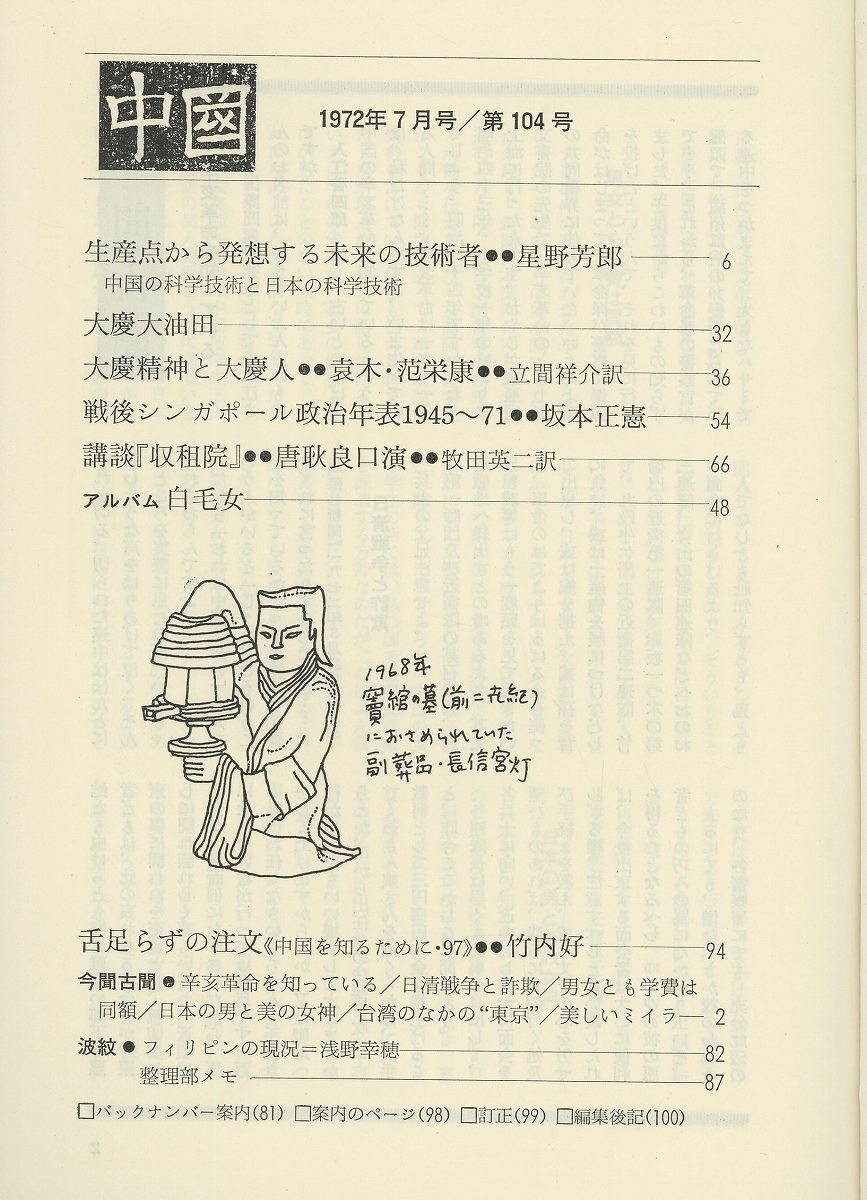 中國
1972年7月号／第104号
生産点から発想する未来の技術者●●星野芳郎 6
中国の科学技術と日本の科学技術
大慶大油田 32
大慶精神と大慶人●●袁木・范栄康●●立間祥介訳 36
戦後シンガポール政治年表1945〜71●●坂本正憲 54
講談『収租院』●●唐耿良口演●●牧田英二訳 66
アルバム 白毛女 48
1968年
竇綰の墓(前二世紀)
におさめられていた
副葬品・長信宮灯
舌足らずの注文《中国を知るために・97》●●竹内好 94
今聞古聞●辛亥革命を知っている／日清戦争と詐欺／男女とも学費は
同額／日本の男と美の女神／台湾のなかの“東京”／美しいミイラ 2
波紋●フィリピンの現況＝浅野幸穂 82
整理部メモ 87
□バックナンバー案内(81) □案内のページ(98) □訂正(99) □編集後記(100)